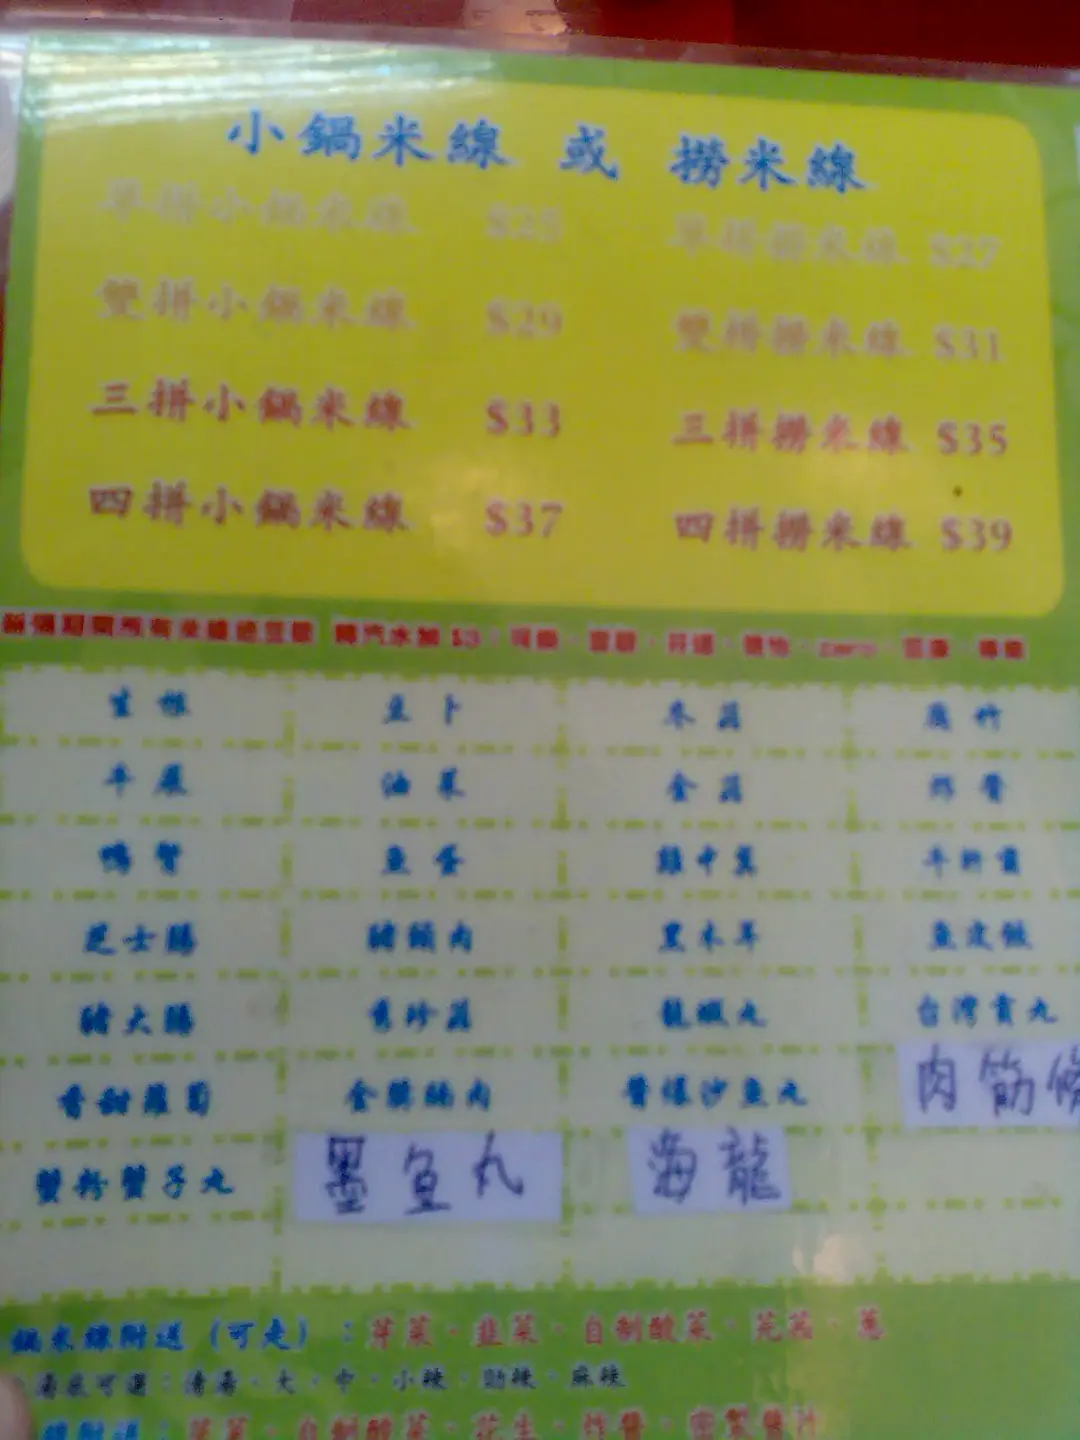 小鍋米線 或 撈米線
單拼小鍋米線 $25 單拼撈米線 $27
雙拼小鍋米線 $29 雙拼撈米線 $31
三拼小鍋米線 $33 三拼撈米線 $35
四拼小鍋米線 $37 四拼撈米線 $39
汽水加 $3 zero
生根 豆卜 冬菇 腐竹
牛展 油菜 金菇 炸醬
鴨腎 魚蛋 雞中翼 牛柏葉
芝士腸 豬頸肉 黑木耳 魚皮餃
豬大腸 秀珍菇 龍蝦丸 台灣貢丸
香甜蘿蔔 金獎腩肉 醬爆沙魚丸 肉筋條
蟹粉蟹子丸 墨魚丸 海龍
鍋米線附送 (可走) : 芽菜、韮菜、自制酸菜、芫茜、蔥
湯底可選 : 清湯、大、中、小辣、勁辣、麻辣
線附送 : 韮菜、自制酸菜、花生、炸醬、密製醬汁